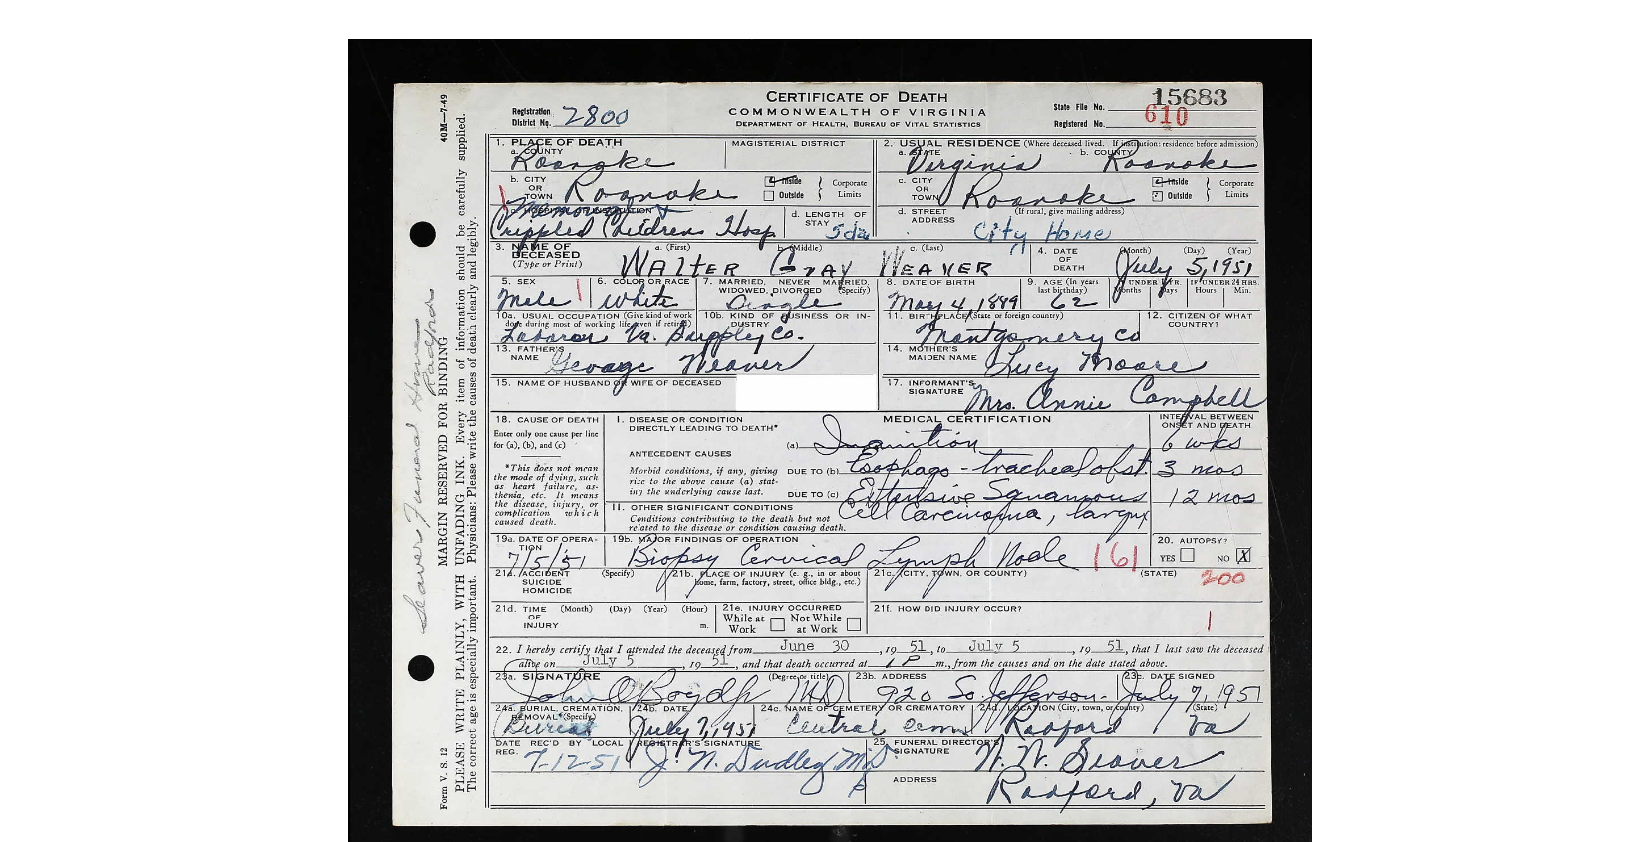 CERTIFICATE OF DEATH
COMMONWEALTH OF VIRGINIA
DEPARTMENT OF HEALTH, BUREAU OF VITAL STATISTICS
Registration District No. 2800
State File No. 15683
Registered No. 610
1. PLACE OF DEATH
a. COUNTY Roanoke
MAGISTERIAL DISTRICT
b. CITY OR TOWN Roanoke
Inside
Outside
Corporate Limits
c. HOSPITAL OR INSTITUTION Memorial &
Crippled Childrens Hosp
d. LENGTH OF STAY 5da
2. USUAL RESIDENCE (Where deceased lived. If institution: residence before admission)
a. STATE Virginia
b. COUNTY Roanoke
c. CITY OR TOWN Roanoke
Inside
Outside
Corporate Limits
d. STREET ADDRESS (If rural, give mailing address)
City Home
3. NAME OF DECEASED (Type or Print)
a. (First) WALTER
b. (Middle) GRAY
c. (Last) WEAVER
4. DATE OF DEATH (Month) (Day) (Year)
July 5, 1951
5. SEX Male
6. COLOR OR RACE White
7. MARRIED, NEVER MARRIED, WIDOWED, DIVORCED (Specify) Single
8. DATE OF BIRTH May 4, 1889
9. AGE (In years last birthday) 62
IF UNDER 1 YR. Months Days
IF UNDER 24 HRS. Hours Min.
10a. USUAL OCCUPATION (Give kind of work done during most of working life, even if retired)
Laborer
10b. KIND OF BUSINESS OR INDUSTRY
Va. Supply Co.
11. BIRTHPLACE (State or foreign country)
Montgomery Co
12. CITIZEN OF WHAT COUNTRY?
13. FATHER'S NAME George Weaver
14. MOTHER'S MAIDEN NAME Lucy Moore
15. NAME OF HUSBAND OR WIFE OF DECEASED
17. INFORMANT'S SIGNATURE Mrs. Annie Campbell
18. CAUSE OF DEATH
Enter only one cause per line for (a), (b), and (c)
*This does not mean the mode of dying, such as heart failure, asthenia, etc. It means the disease, injury, or complication which caused death.
MEDICAL CERTIFICATION
INTERVAL BETWEEN ONSET AND DEATH
I. DISEASE OR CONDITION DIRECTLY LEADING TO DEATH*
(a) Inanition 6 wks
ANTECEDENT CAUSES
Morbid conditions, if any, giving rise to the above cause (a) stating the underlying cause last.
DUE TO (b) Esophago-tracheal obst. 3 mos
DUE TO (c) Extensive Squamous 12 mos
Cell Carcinoma, larynx
II. OTHER SIGNIFICANT CONDITIONS
Conditions contributing to the death but not related to the disease or condition causing death.
19a. DATE OF OPERATION 7/5/51
19b. MAJOR FINDINGS OF OPERATION
Biopsy Cervical Lymph Node
161
20. AUTOPSY?
YES NO X
21a. ACCIDENT SUICIDE HOMICIDE (Specify)
21b. PLACE OF INJURY (e. g., in or about home, farm, factory, street, office bldg., etc.)
21c. (CITY, TOWN, OR COUNTY) (STATE)
200
21d. TIME OF INJURY (Month) (Day) (Year) (Hour) m.
21e. INJURY OCCURRED
While at Work Not While at Work
21f. HOW DID INJURY OCCUR?
22. I hereby certify that I attended the deceased from June 30, 1951, to July 5, 1951, that I last saw the deceased
alive on July 5, 1951, and that death occurred at 1 P m., from the causes and on the date stated above.
23a. SIGNATURE (Degree or title)
John O Boyd Jr MD
23b. ADDRESS
920 So. Jefferson
23c. DATE SIGNED
July 7, 1951
24a. BURIAL, CREMATION, REMOVAL (Specify)
Burial
24b. DATE
July 7, 1951
24c. NAME OF CEMETERY OR CREMATORY
Central Cem
24d. LOCATION (City, town, or county) (State)
Radford Va
DATE REC'D BY LOCAL REG. 7-12-51
REGISTRAR'S SIGNATURE
J. N. Dudley MD
25. FUNERAL DIRECTOR'S SIGNATURE
ADDRESS
Radford, Va
40M—7-49
Form V. S. 12
MARGIN RESERVED FOR BINDING
PLEASE WRITE PLAINLY, WITH UNFADING INK. Every item of information should be carefully supplied.
The correct age is especially important. Physicians: Please write the causes of death clearly and legibly.
Funeral Home
Radford